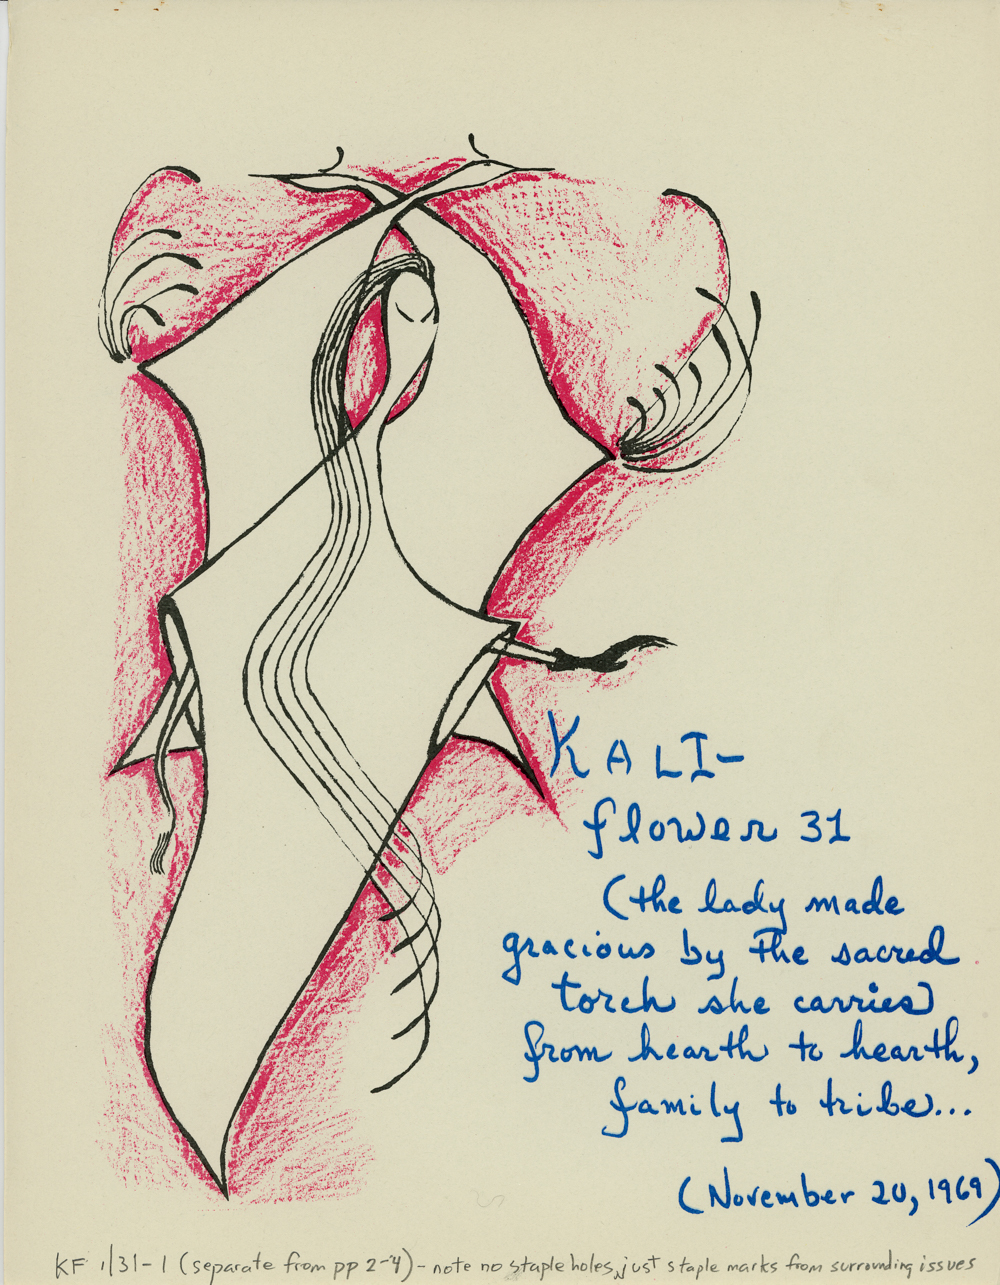 KALI-
flower 31
(the lady made
gracious by the sacred
torch she carries
from hearth to hearth,
family to tribe...
(November 20, 1969)
KF 1/31-1 (separate from pp 2-4) - note no staple holes, just staple marks from surrounding issues